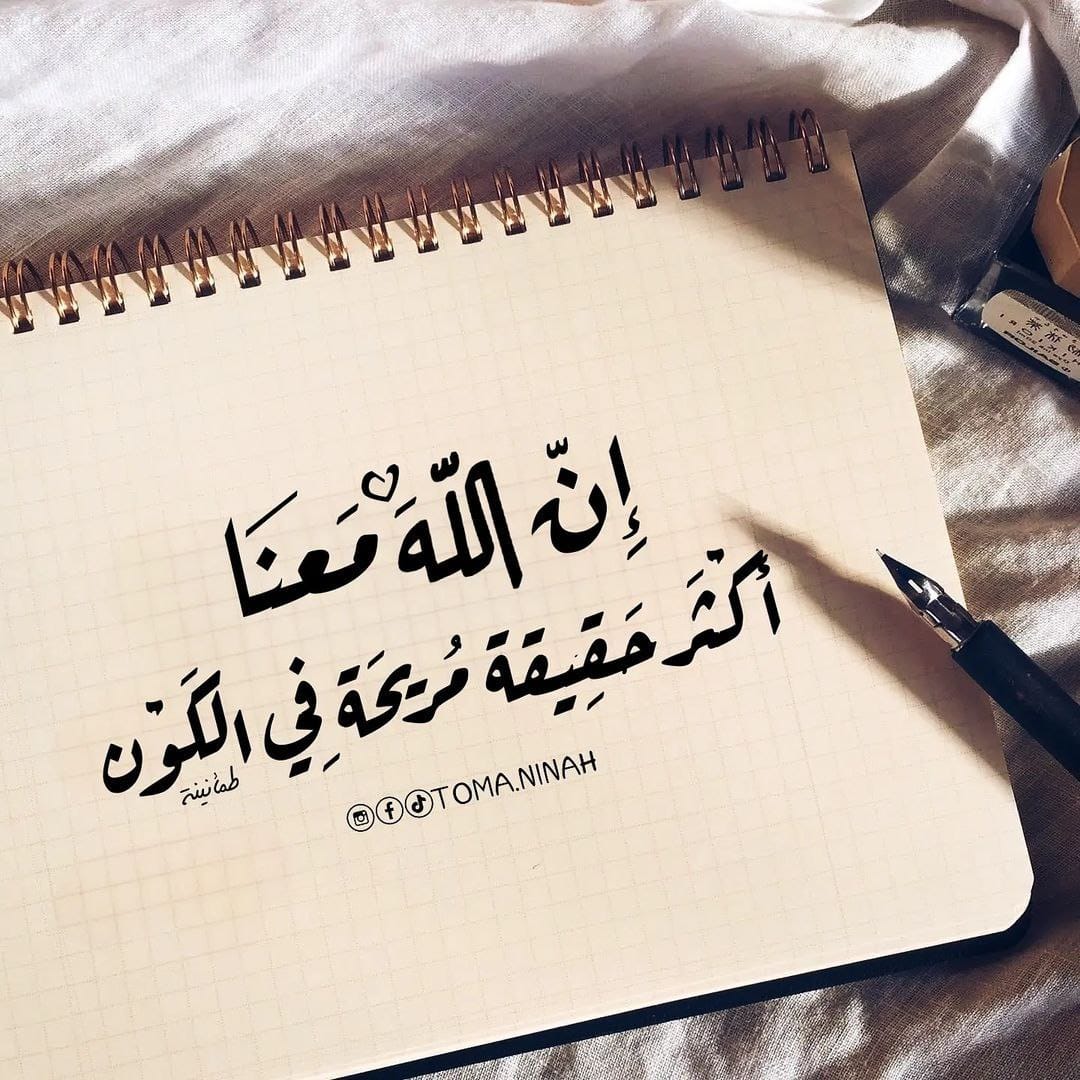 إِنّ اللّهَ مَعنَا
أكْثَر حَقِيقة مُريحَة فِي الكَوْن
طمأنينة
TOMA.NINAH